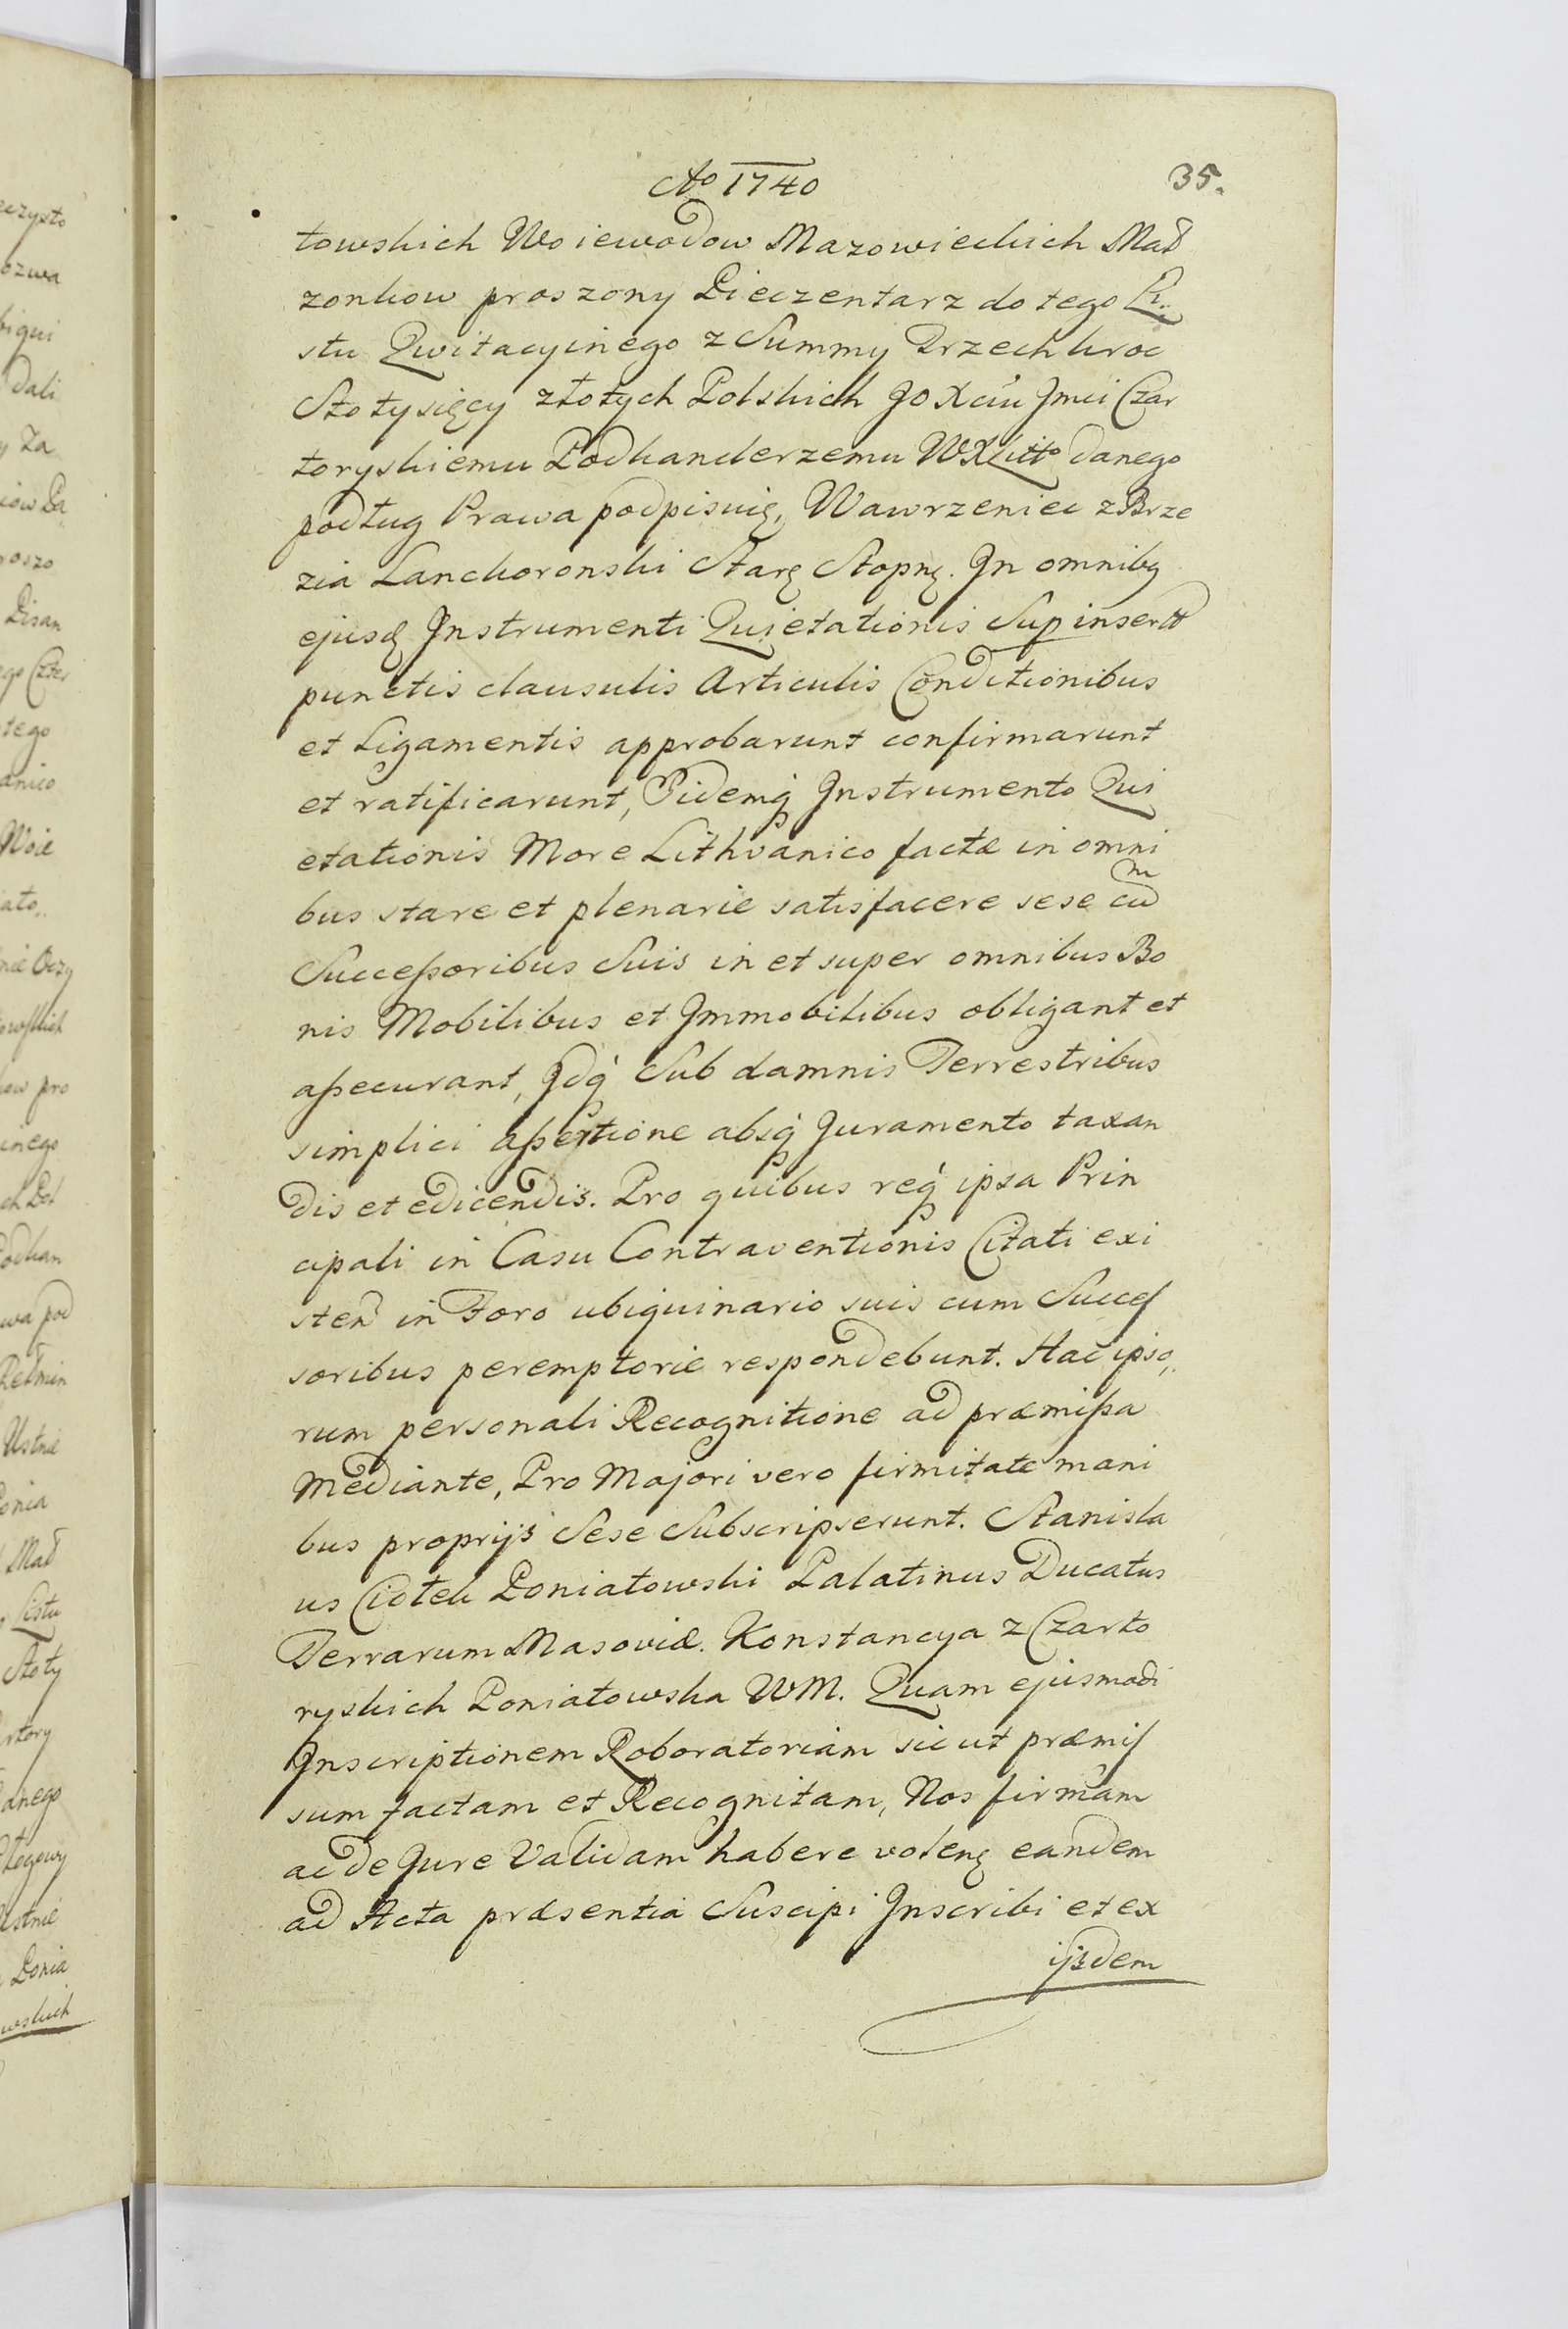 Ao 1740
35.
towskich Woiewodow Mazowieckich Mał
zonkow proszony Pieczentarz do tego Li,,
stu Qwitacyinego z Summy Trzechkroc
Stotysięcy złotych Polskich JO Xciu Jmci Czar
toryskiemu Podkanclerzemu WXLitto danego
podług Prawa podpisuię, Wawrzeniec z Brze
zia Lanckoronski Starę Stopnę. In omnibq
ejusd Instrumenti Quietationis Sup insertt
punctis clausulis Articulis Conditionibus
et Ligamentis approbarunt confirmarunt
et ratificarunt, Eidemq Instrumento Qui
etationis More Lithvanico factæ in omni
bus stare et plenarie satisfacere sese cum
Successoribus Suis in et super omnibus Bo
nis Mobilibus et Immobilibus obligant et
assecurant, Idq Sub damnis Terrestribus
simplici assertione absq Juramento taxan
dis et edicendis. Pro quibus req ipsa Prin
cipali in Casu Contraventionis Citati exi
sten in Foro ubiquinario suis cum Succes
soribus peremptorie respondebunt. Hac ipso,,
rum personali Recognitione ad præmissa
Mediante, Pro Majori vero firmitate mani
bus proprijs Sese Subscripserunt. Stanisla
us Ciołek Poniatowski Palatinus Ducatus
Terrarum Masoviæ. Konstancya z Czarto
ryskich Poniatowska WM. Quam ejusmodi
Inscriptionem Roboratoriam sicut præmis
sum factam et Recognitam, Nos firmam
ac de Jure Validam habere volenę eandem
ad Acta præsentia Suscipi Inscribi et ex
ijsdem